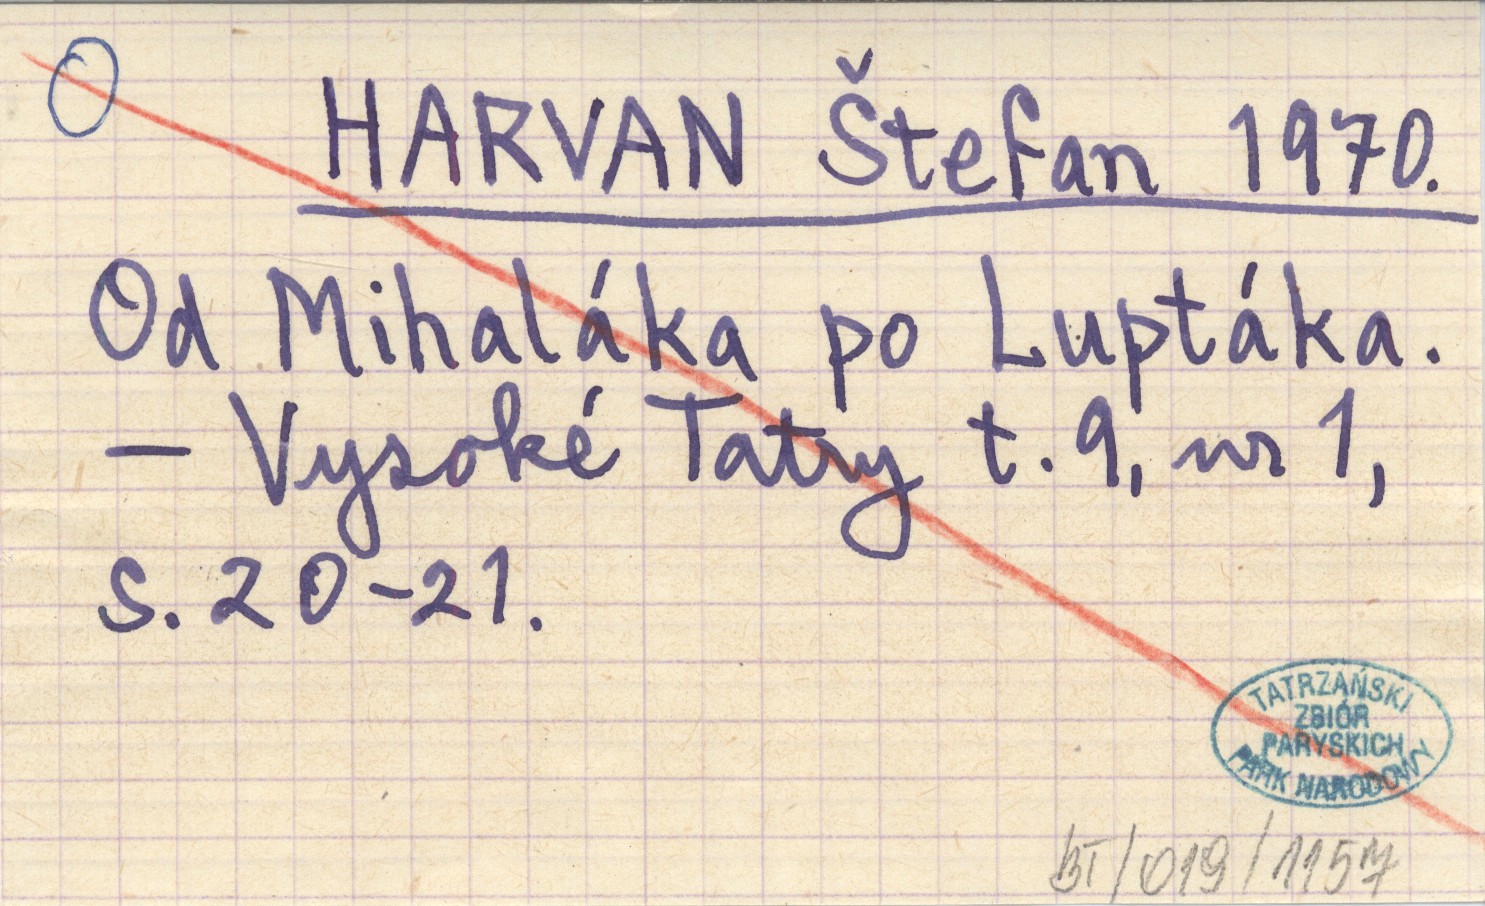 O
HARVAN Štefan 1970.
Od Mihaláka po Luptáka.
– Vysoké Tatry t. 9, nr 1,
s. 20-21.
TATRZAŃSKI
ZBIÓR
PARYSKICH
PARK NARODOWY
BT/019/1157